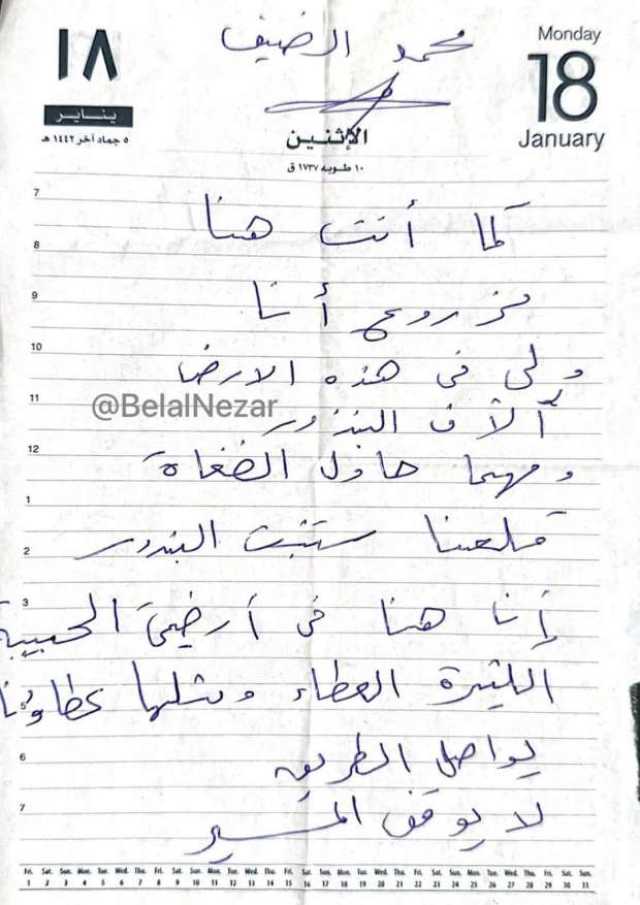 محمد الضيف
١٨
Monday
18
يناير
January
٥ جماد آخر ١٤٤٢ هـ
الإثنين
١٠ طوبه ١٧٣٧ ق
7
كما أنت هنا
8
9
مزروع أنا
10
ولى فى هذه الارض
11
@BelalNezar
آلاف البذور
12
ومهما حاول الطغاة
1
قلعنا ستنبت البذور
2
3
إنا هنا فى أرضي الحبيبة
الكثيرة العطاء ومثلها عطاؤنا
5
6
يواصل الطريق
7
لا يوقف المسير
Fri. Sat. Sun. Mon. Tue. Wed. Thu. Fri. Sat. Sun. Mon. Tue. Wed. Thu. Fri. Sat. Sun. Mon. Tue. Wed. Thu. Fri. Sat. Sun. Mon. Tue. Wed. Thu. Fri. Sat. Sun.
1 2 3 4 5 6 7 8 9 10 11 12 13 14 15 16 17 18 19 20 21 22 23 24 25 26 27 28 29 30 31